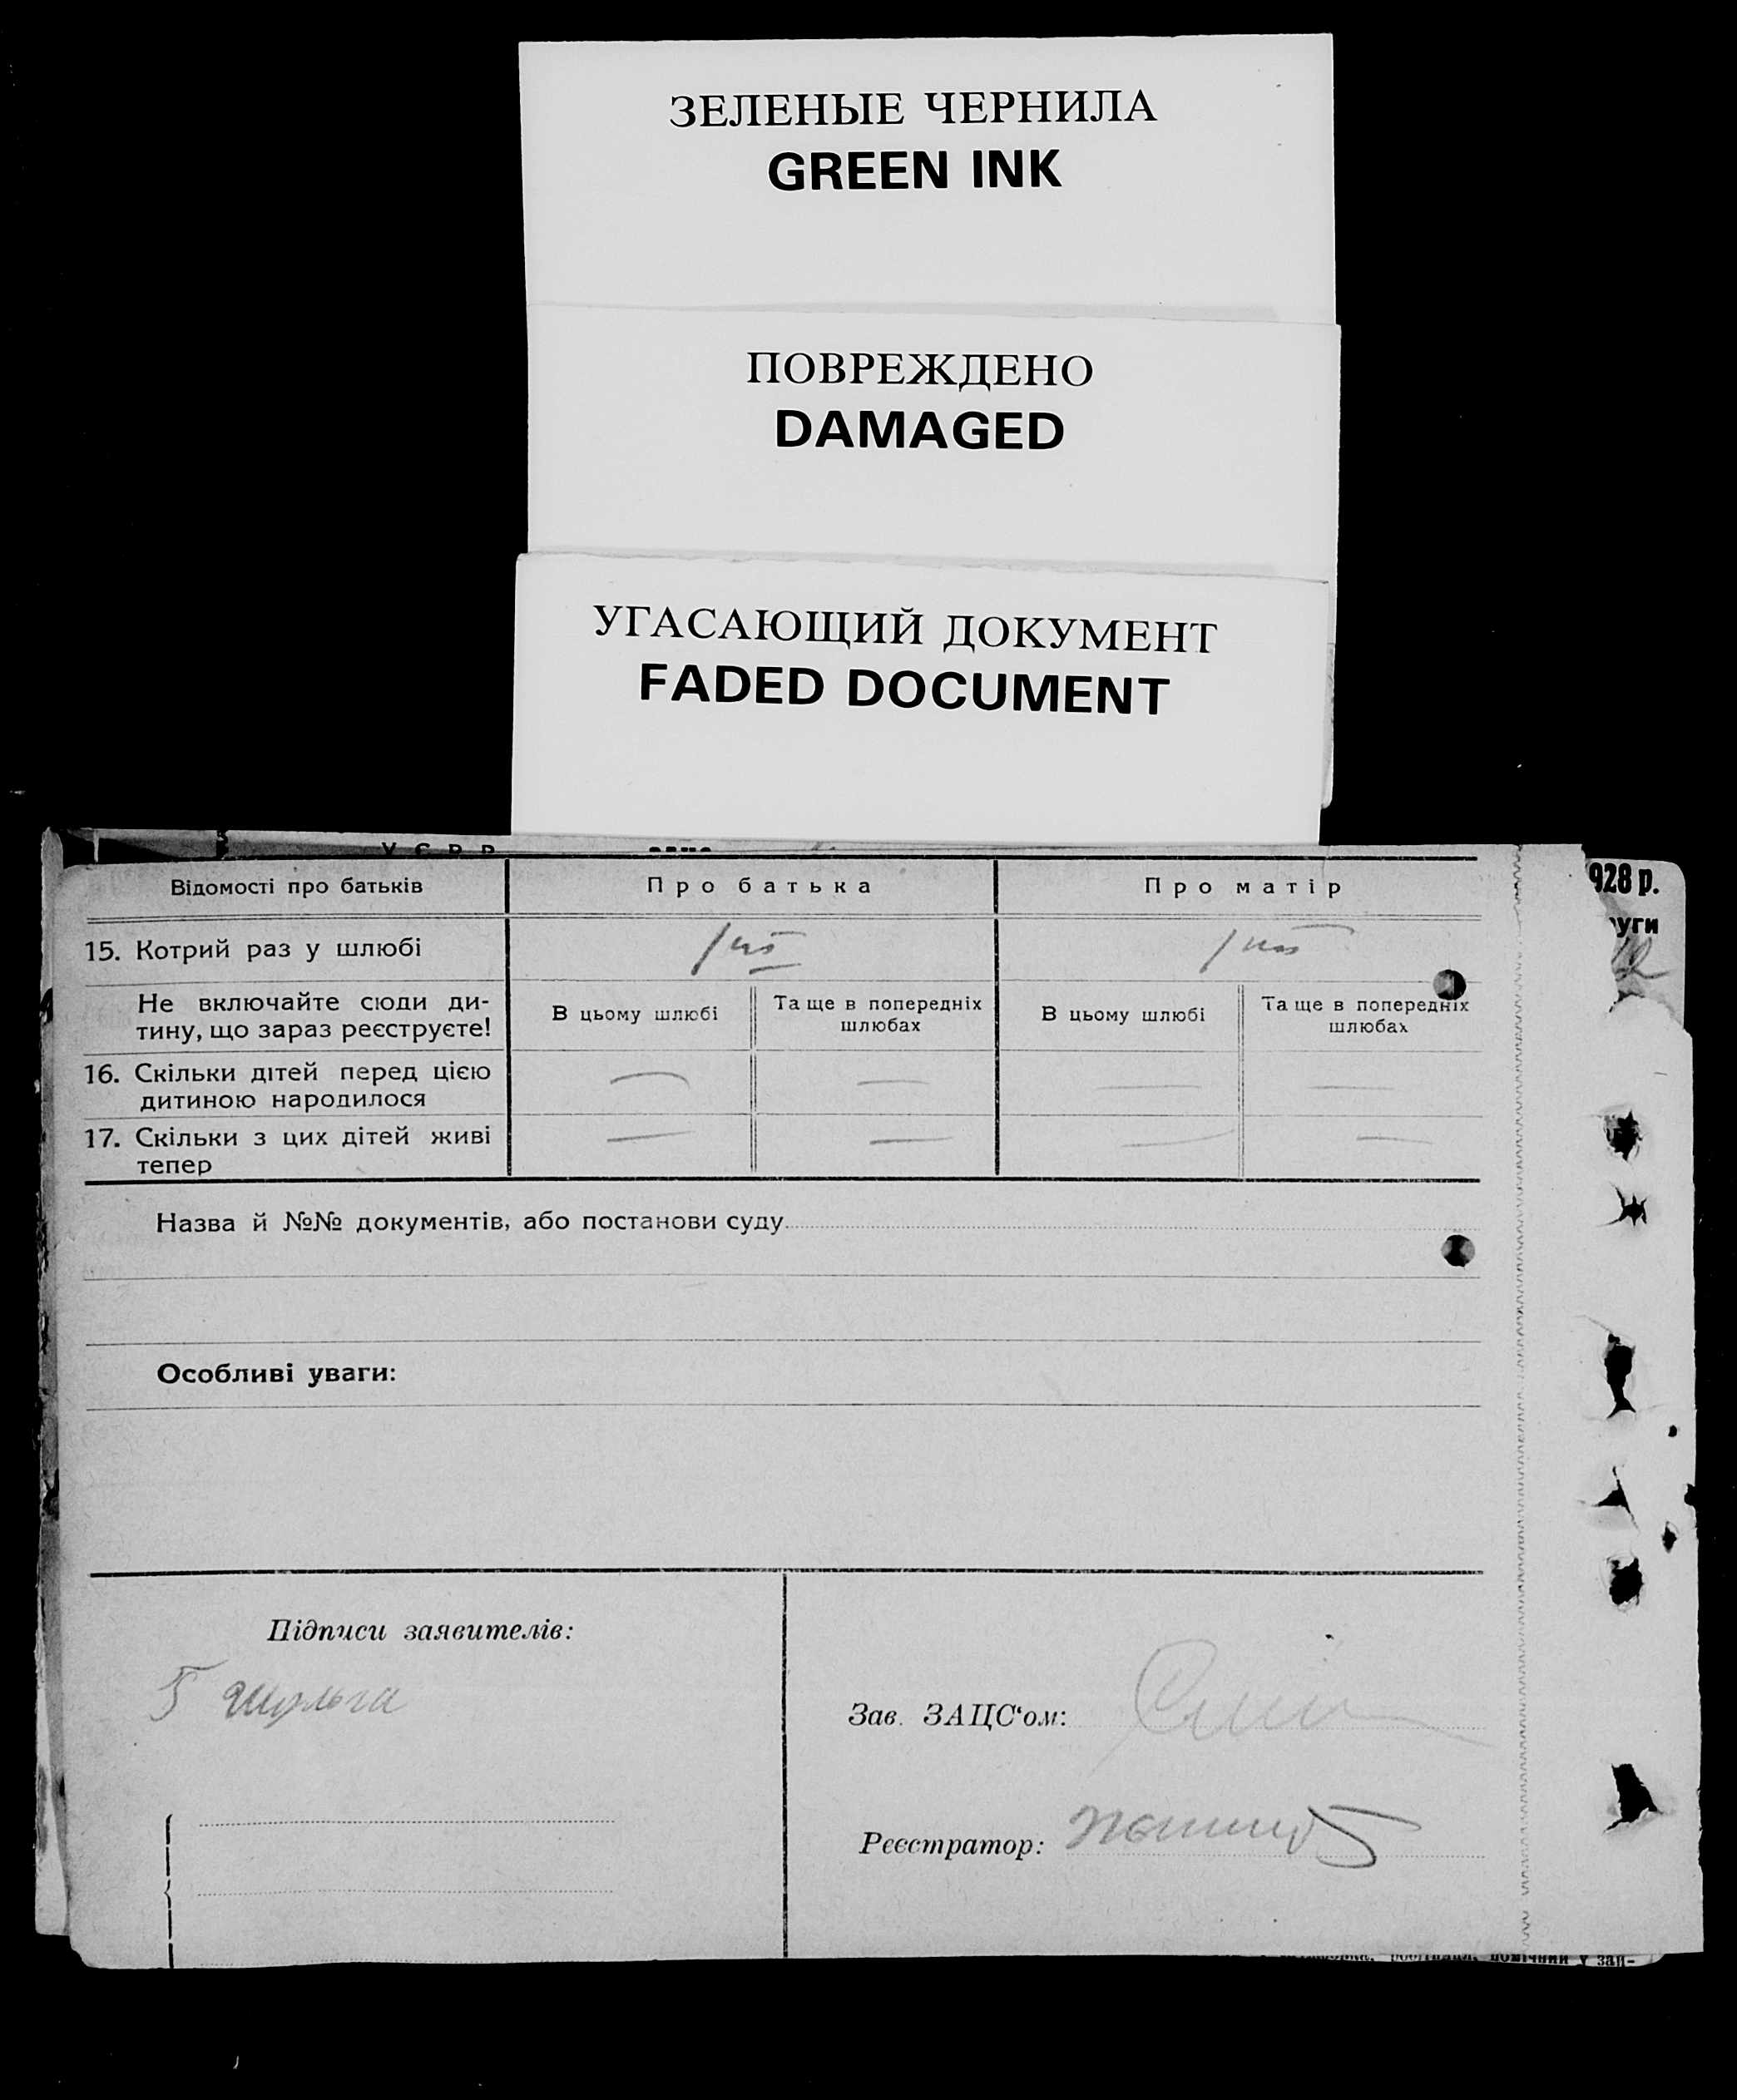 ЗЕЛЕНЫЕ ЧЕРНИЛА
GREEN INK
ПОВРЕЖДЕНО
DAMAGED
УГАСАЮЩИЙ ДОКУМЕНТ
FADED DOCUMENT
У.С.Р.Р.
928 р.
уги
Відомості про батьків Про батька Про матір
15. Котрий раз у шлюбі
Не включайте сюди ди-
тину, що зараз реєструєте!
В цьому шлюбі Та ще в попередніх шлюбах В цьому шлюбі Та ще в попередніх шлюбах
16. Скільки дітей перед цією
дитиною народилося — — — —
17. Скільки з цих дітей живі
тепер — — — —
Назва й №№ документів, або постанови суду
Особливі уваги:
Підписи заявителів:
Шульга
Зав. ЗАЦС‘ом:
Реєстратор: